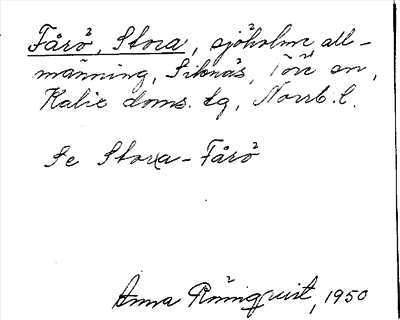 Fårö, Stora, sjöholme all-
männing, Siknäs, Töre sn,
Kalix doms. tg, Norrb. l.
Se Stora-Fårö
Anna Rönnqvist, 1950